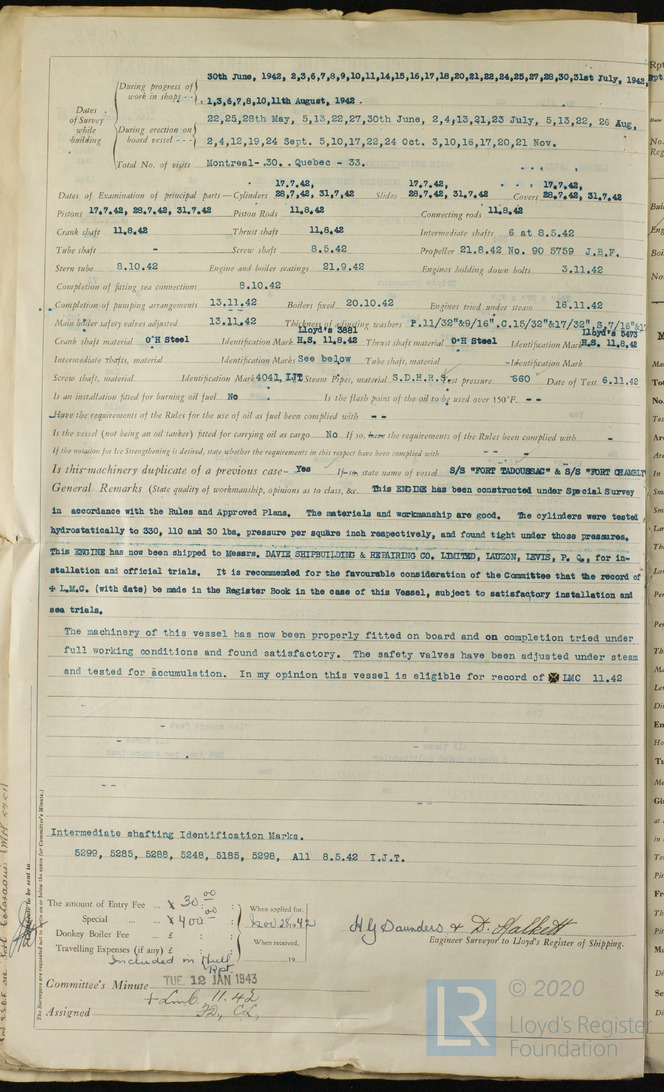 30th June, 1942, 2,3,6,7,8,9,10,11,14,15,16,17,18,20,21,22,24,25,27,28,30,31st July, 1942,
During progress of work in shops - -
1,3,6,7,8,10,11th August, 1942.
Dates of Survey while building
22,25,28th May, 5,13,22,27,30th June, 2,4,13,21,23 July, 5,13,22, 26 Aug,
During erection on board vessel - - -
2,4,12,19,24 Sept. 5,10,17,22,24 Oct. 3,10,16,17,20,21 Nov.
Total No. of visits Montreal- 30. . Quebec - 33.
17.7.42, 17.7.42, 17.7.42,
Dates of Examination of principal parts—Cylinders 28.7.42, 31.7.42 Slides 28.7.42, 31.7.42 Covers 28.7.42, 31.7.42
Pistons 17.7.42, 28.7.42, 31.7.42 Piston Rods 11.8.42 Connecting rods 11.8.42
Crank shaft 11.8.42 Thrust shaft 11.8.42 Intermediate shafts 6 at 8.5.42
Tube shaft - Screw shaft 8.5.42 Propeller 21.8.42 No. 90 5759 J.B.F.
Stern tube 8.10.42 Engine and boiler seatings 21.9.42 Engines holding down bolts 3.11.42
Completion of fitting sea connections 8.10.42
Completion of pumping arrangements 13.11.42 Boilers fixed 20.10.42 Engines tried under steam 16.11.42
Main boiler safety valves adjusted 13.11.42 Thickness of adjusting washers P.11/32"&9/16", C.15/32"&17/32", S.7/16"&
Lloyd's 3881 Lloyd's 5473
Crank shaft material O'H Steel Identification Mark H.S. 11.8.42 Thrust shaft material O'H Steel Identification Mark H.S. 11.8.42
Intermediate shafts, material Identification Marks See below Tube shaft, material - Identification Mark
Screw shaft, material Identification Mark 4041, IJT Steam Pipes, material S.D.H.R.S. Test pressure 660 Date of Test 6.11.42
Is an installation fitted for burning oil fuel No Is the flash point of the oil to be used over 150°F. - -
Have the requirements of the Rules for the use of oil as fuel been complied with - -
Is the vessel (not being an oil tanker) fitted for carrying oil as cargo No If so, have the requirements of the Rules been complied with -
If the notation for Ice Strengthening is desired, state whether the requirements in this respect have been complied with - - -
Is this machinery duplicate of a previous case - Yes If so, state name of vessel S/S "FORT TADOUSSAC" & S/S "FORT CHAMBLY
General Remarks (State quality of workmanship, opinions as to class, &c. This ENGINE has been constructed under Special Survey
in accordance with the Rules and Approved Plans. The materials and workmanship are good. The cylinders were tested
hydrostatically to 330, 110 and 30 lbs. pressure per square inch respectively, and found tight under those pressures.
This ENGINE has now been shipped to Messrs. DAVIE SHIPBUILDING & REPAIRING CO. LIMITED, LAUZON, LEVIS, P. Q., for in-
stallation and official trials. It is recommended for the favourable consideration of the Committee that the record of
+ L.M.C. (with date) be made in the Register Book in the case of this Vessel, subject to satisfactory installation and
sea trials.
The machinery of this vessel has now been properly fitted on board and on completion tried under
full working conditions and found satisfactory. The safety valves have been adjusted under steam
and tested for accumulation. In my opinion this vessel is eligible for record of LMC 11.42
Intermediate shafting Identification Marks.
5299, 5285, 5288, 5248, 5185, 5298, All 8.5.42 I.J.T.
The amount of Entry Fee ... $ 30.00 When applied for,
Special ... $ 400.00 Nov 28, 1942
Donkey Boiler Fee ... £ : : When received,
Travelling Expenses (if any) £ : : 19
Included in Hull Rpt.
H G Saunders & D. Halkett
Engineer Surveyor to Lloyd's Register of Shipping.
Committee's Minute TUE. 12 JAN 1943
+ Lmc 11.42
Assigned FD, CL,
© 2020
LR Lloyd's Register
Foundation